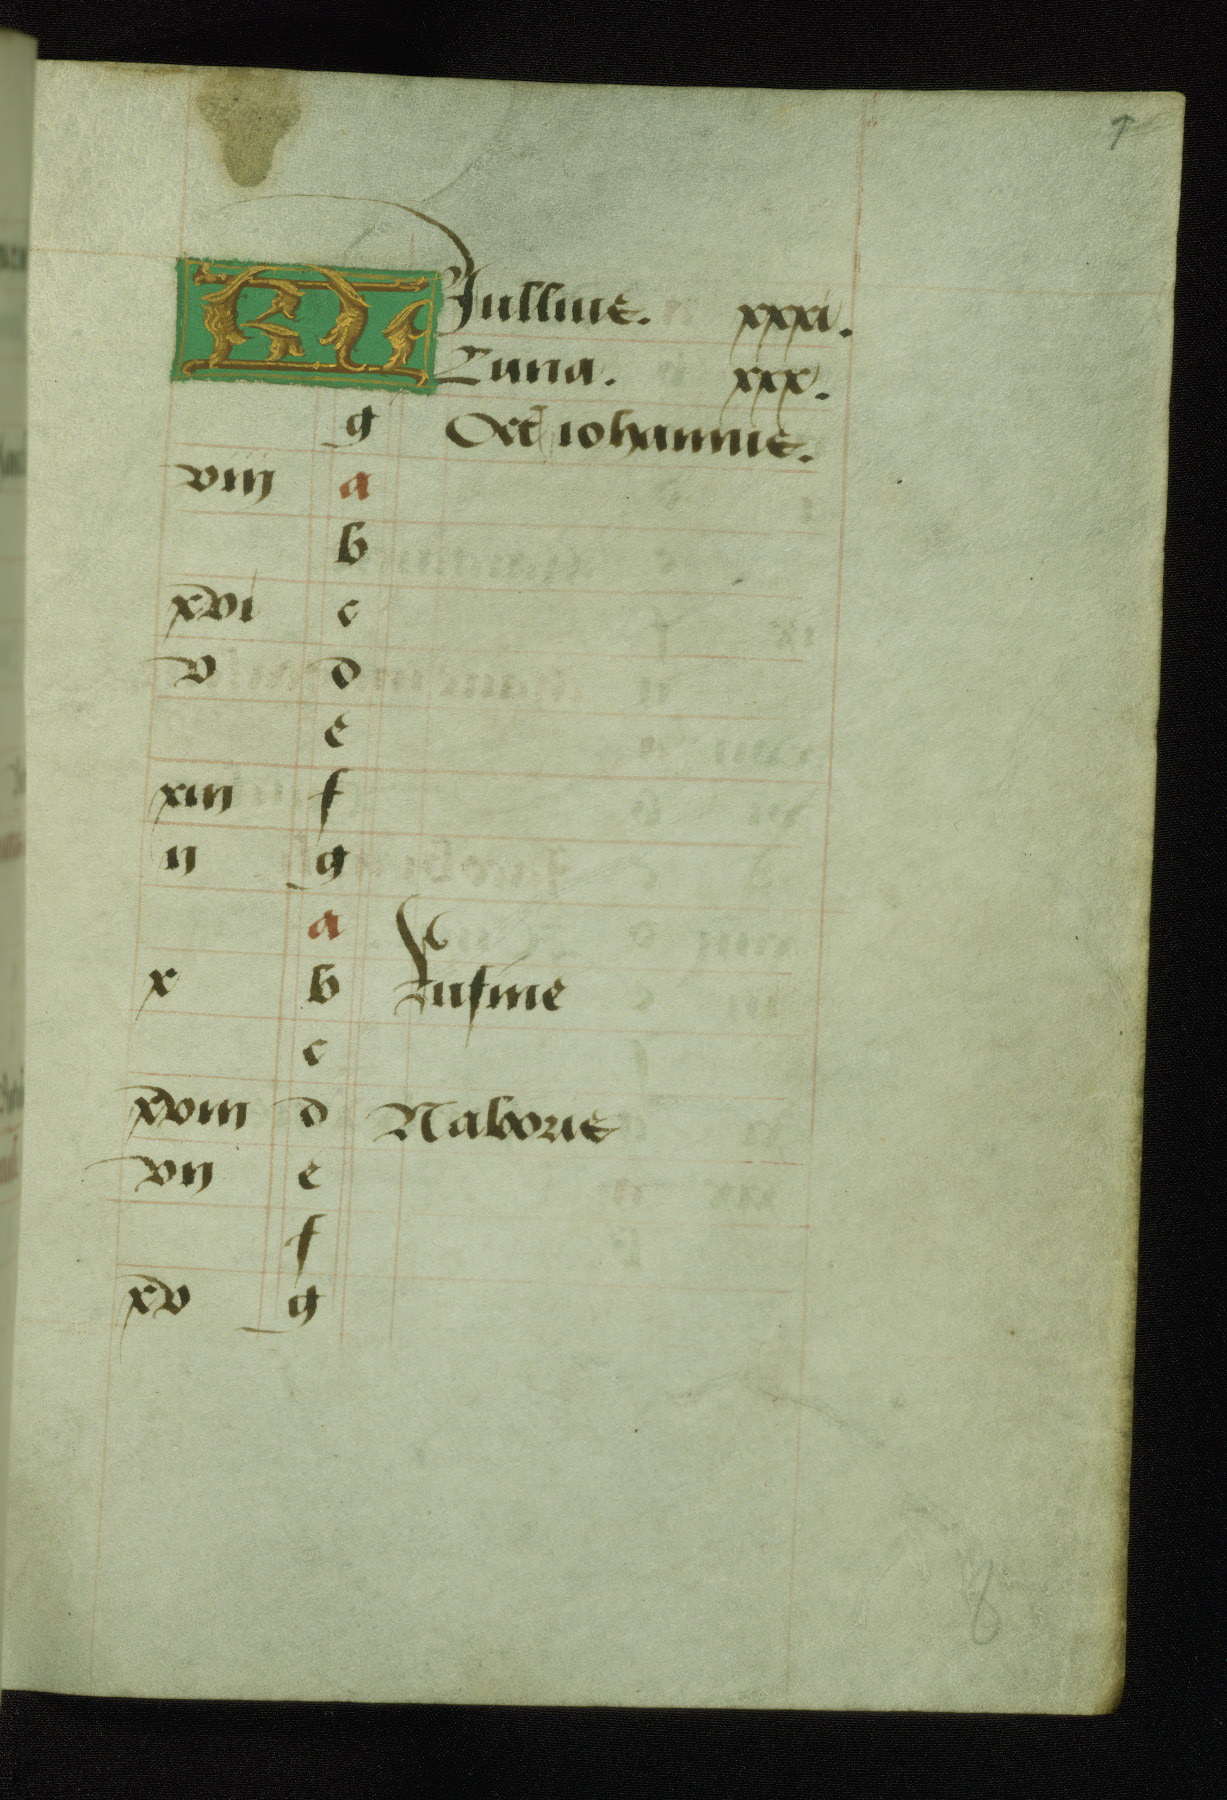 KL Jullius. xxxi.
Luna. xxx.
g Oct iohannis.
viii a
b
xvi c
v d
e
xiii f
ii g
a
x b Rufine
c
xviii d Naboris
vii e
f
xv g
8